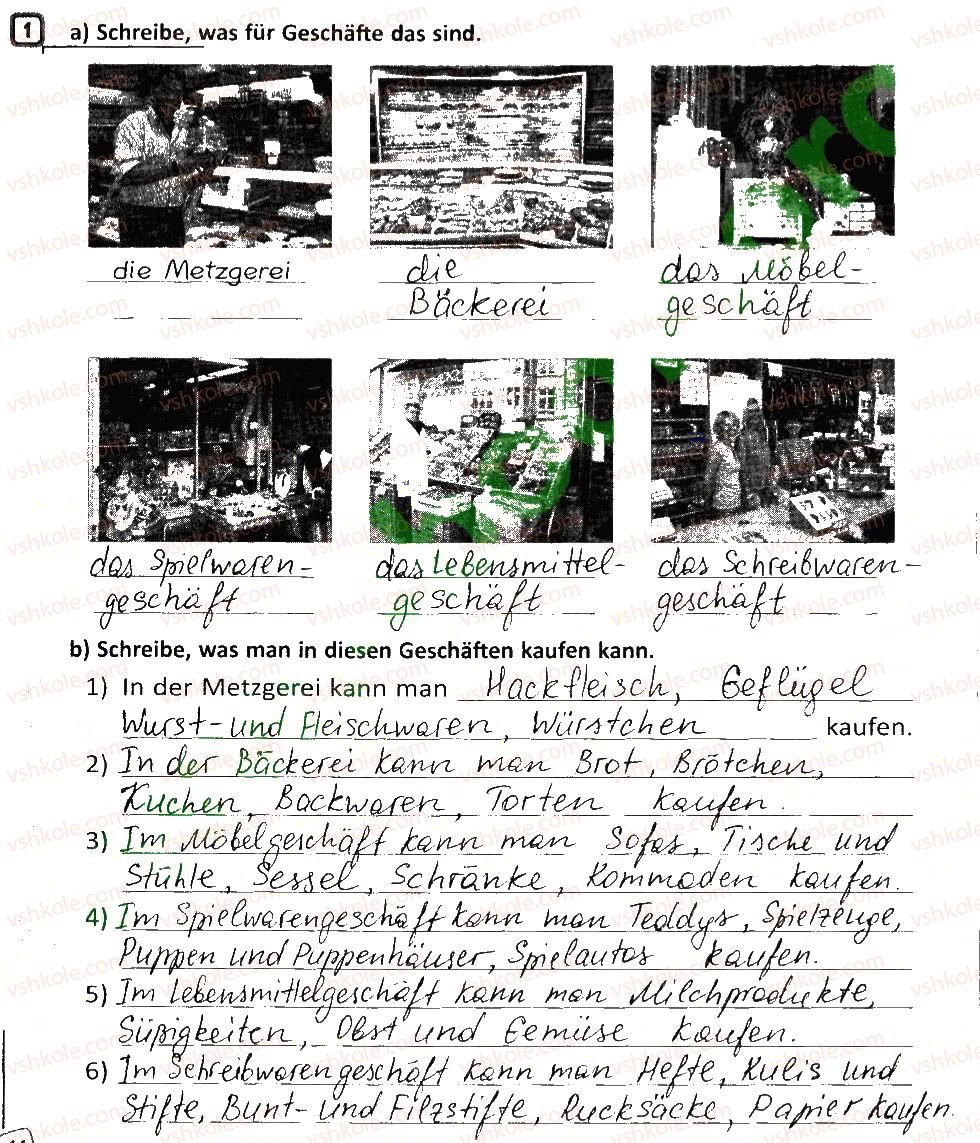 1 a) Schreibe, was für Geschäfte das sind.
die Metzgerei
die Bäckerei
das Möbel-
geschäft
das Spielwaren-
geschäft
das Lebensmittel-
geschäft
das Schreibwaren-
geschäft
b) Schreibe, was man in diesen Geschäften kaufen kann.
1) In der Metzgerei kann man Hackfleisch, Geflügel
Wurst- und Fleischwaren, Würstchen kaufen.
2) In der Bäckerei kann man Brot, Brötchen,
Kuchen, Backwaren, Torten kaufen.
3) Im Möbelgeschäft kann man Sofas, Tische und
Stühle, Sessel, Schränke, Kommoden kaufen.
4) Im Spielwarengeschäft kann man Teddys, Spielzeuge,
Puppen und Puppenhäuser, Spielautos kaufen.
5) Im Lebensmittelgeschäft kann man Milchprodukte,
Süßigkeiten, Obst und Gemüse kaufen.
6) Im Schreibwarengeschäft kann man Hefte, Kulis und
Stifte, Bunt- und Filzstifte, Rucksäcke, Papier kaufen.
vshkole.com